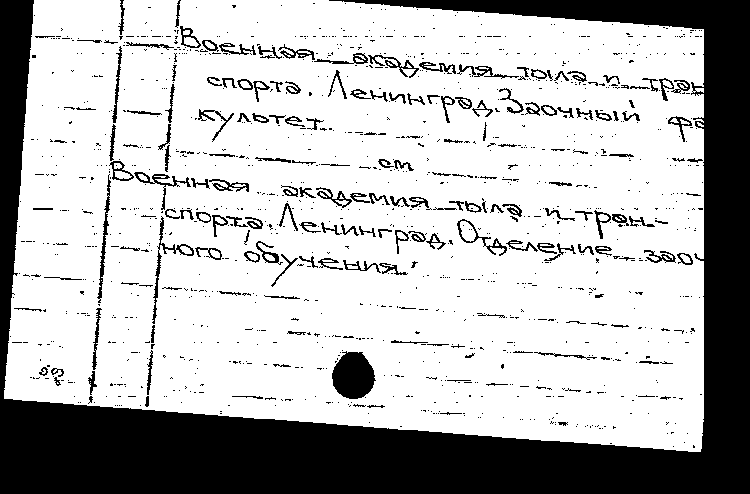 Военная академия тыла и тран
спорта. Ленинград. Заочный фа
культет
см
Военная академия тыла и тран-
спорта. Ленинград. Отделение заоч
ного обучения.